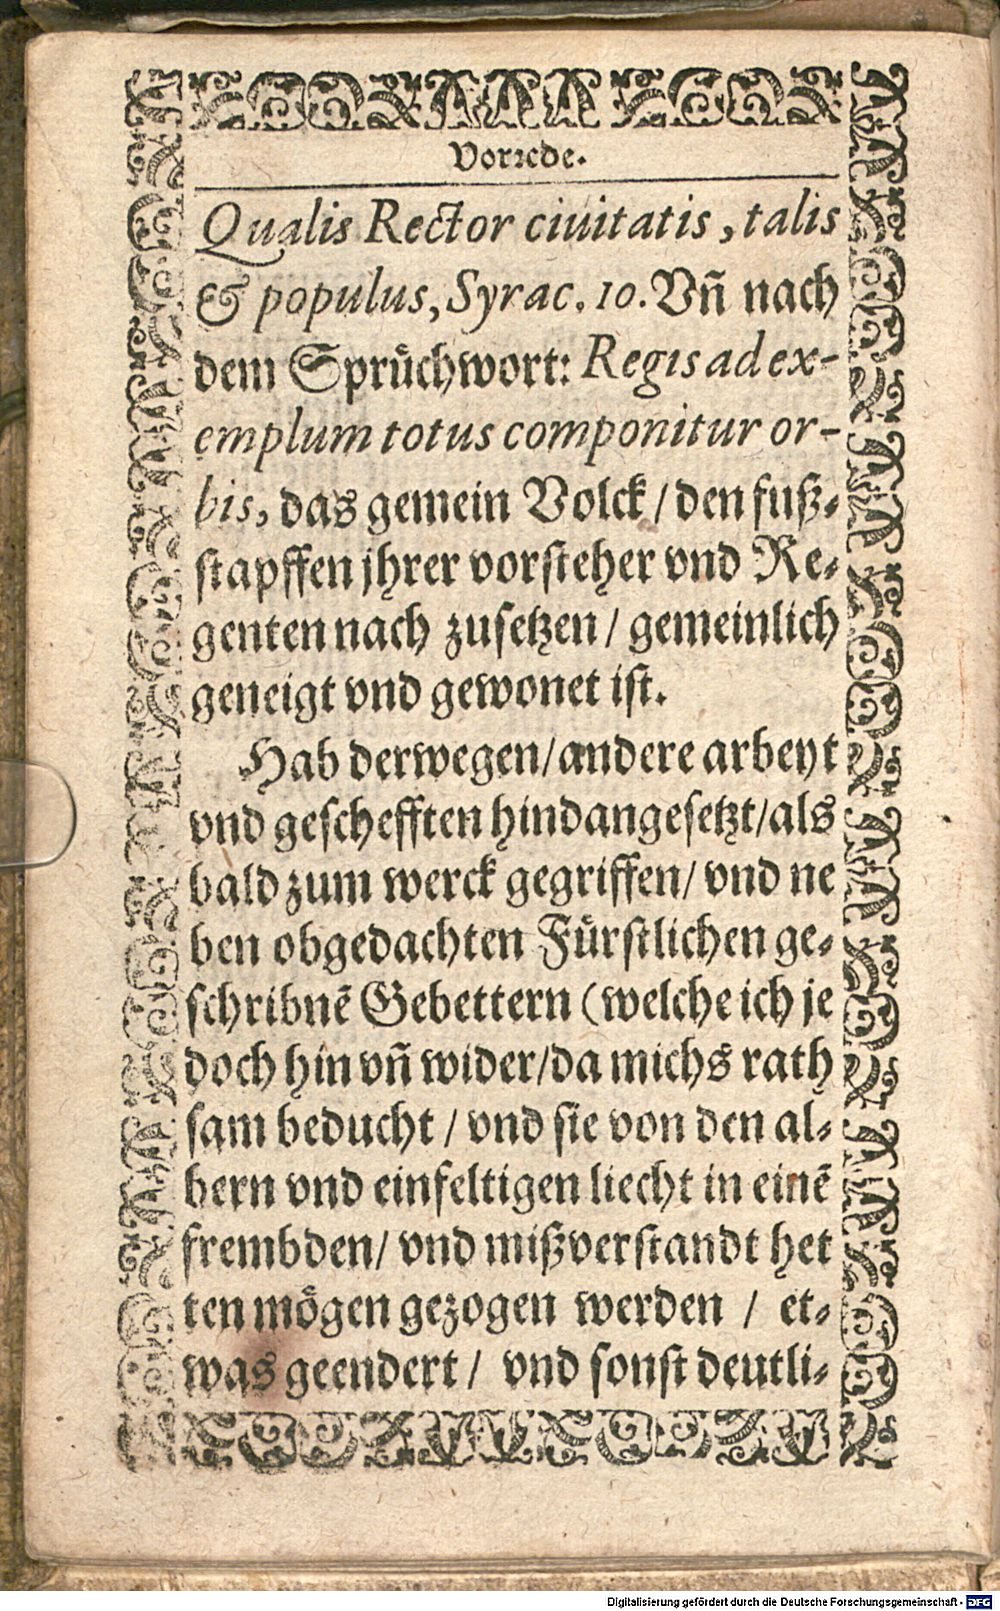 Vorrede.
Qualis Rector ciuitatis, talis
& populus, Syrac. 10. Vñ nach
dem Sprůchwort: Regis ad ex-
emplum totus componitur or-
bis, das gemein Volck / den fuß-
stapffen jhrer vorsteher vnd Re-
genten nach zusetzen / gemeinlich
geneigt vnd gewonet ist.
Hab derwegen / andere arbeyt
vnd geschefften hindangesetzt / als
bald zum werck gegriffen / vnd ne
ben obgedachten Fůrstlichen ge-
schribnẽ Gebettern (welche ich je
doch hin vñ wider / da michs rath
sam beducht / vnd sie von den al-
bern vnd einfeltigen liecht in einẽ
frembden / vnd mißverstandt het
ten mőgen gezogen werden / et-
was geendert / vnd sonst deutli-
Digitalisierung gefördert durch die Deutsche Forschungsgemeinschaft - DFG